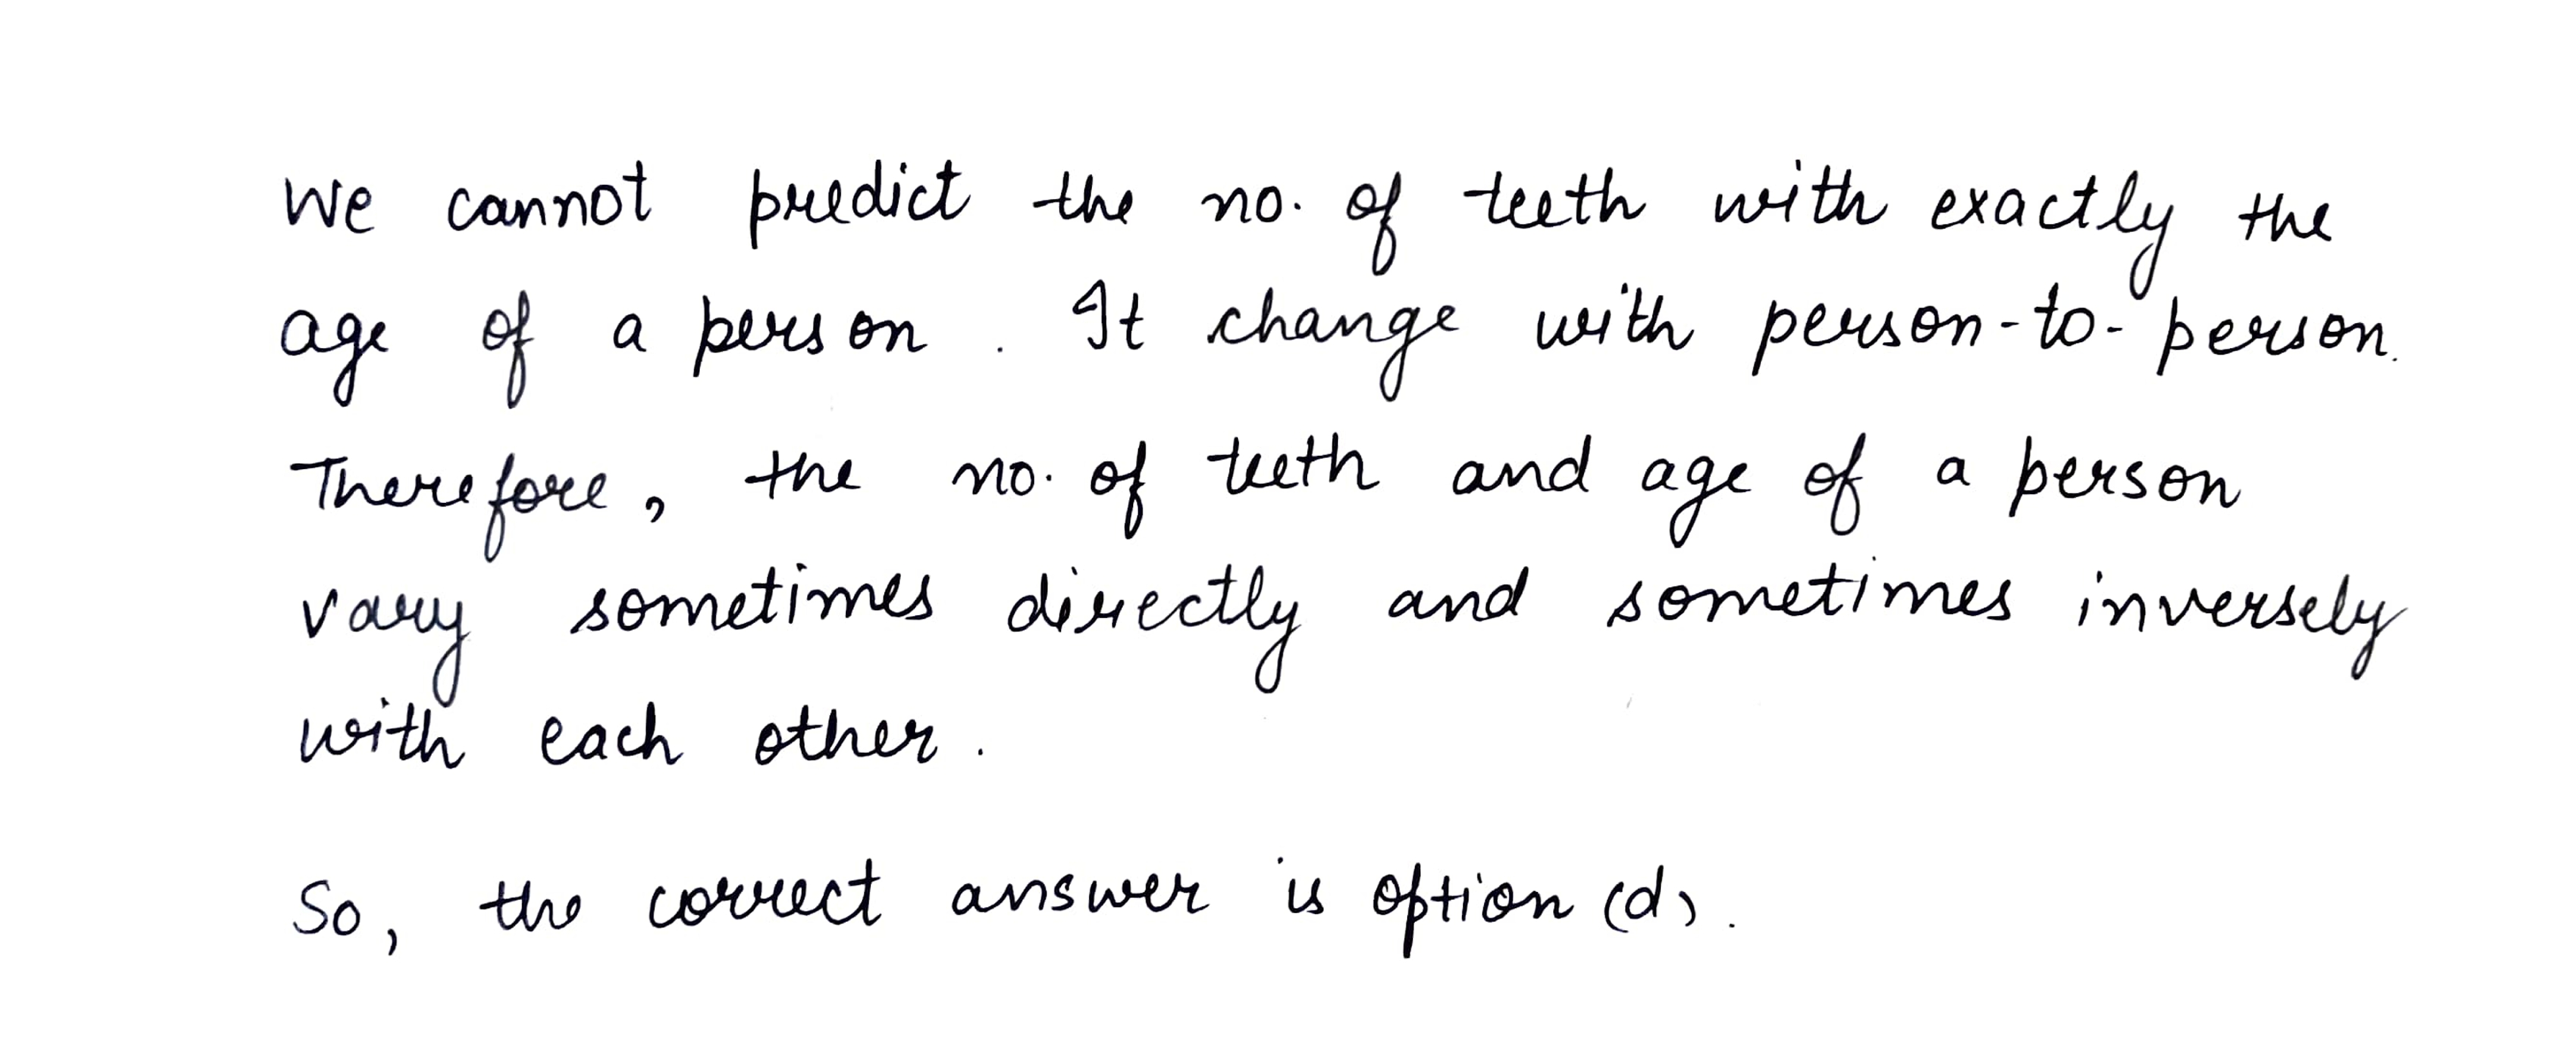 We cannot predict the no. of teeth with exactly the
age of a person. It change with person-to-person.
Therefore, the no. of teeth and age of a person
vary sometimes directly and sometimes inversely
with each other.
So, the correct answer is option (d).